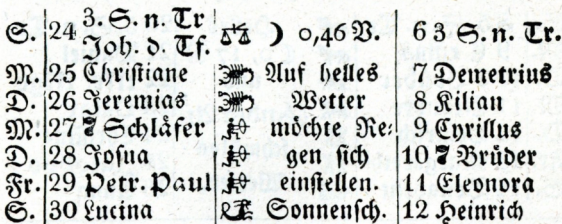 S. 24 3. S. n. Tr Joh. d. Tf. ☽ 0,46 V. 6 3 S. n. Tr.
M. 25 Chriſtiane Auf helles 7 Demetrius
D. 26 Jeremias Wetter 8 Kilian
M. 27 7 Schläfer möchte Re⸗ 9 Cyrillus
D. 28 Joſua gen ſich 10 7 Brüder
Fr. 29 Petr. Paul einſtellen. 11 Eleonora
S. 30 Lucina Sonnenſch. 12 Heinrich